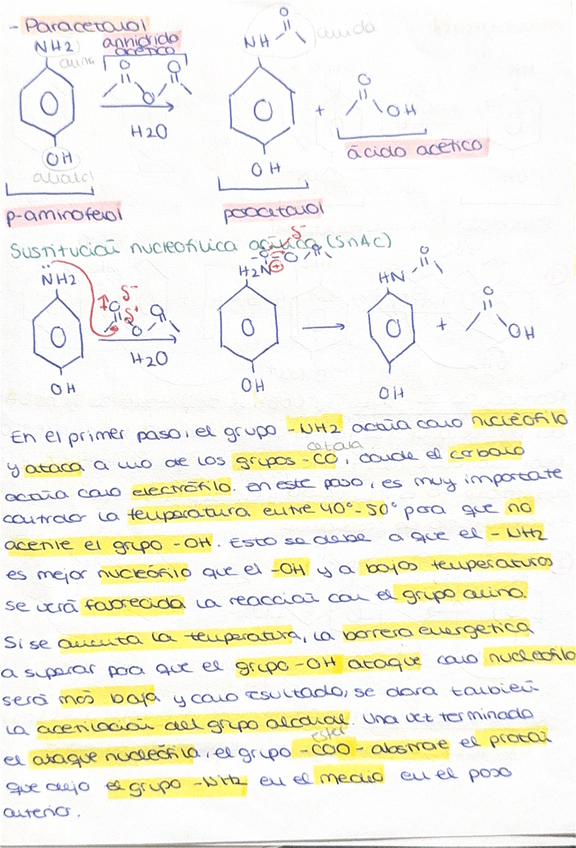 - Paracetamol
NH2 anhídrido acético NH amida
amina O O O
O O
H2O + OH
OH OH ácido acético
alcohol
p-aminofenol paracetamol
Sustitución nucleofílica acílica (SNAC)
NH2 δ- H2N ⊕ O δ- HN O
O δ+ O O + OH
H2O
OH OH OH
En el primer paso, el grupo -NH2 actúa como nucleófilo
cetona
y ataca a uno de los grupos -CO, donde el carbono
actúa como electrófilo. En este paso, es muy importante
controlar la temperatura entre 40°-50° para que no
acetile el grupo -OH. Esto se debe a que el -NH2
es mejor nucleófilo que el -OH y a bajas temperaturas
se verá favorecida la reacción con el grupo amina.
Si se aumenta la temperatura, la barrera energética
a superar para que el grupo -OH ataque como nucleófilo
será más baja y como resultado, se dara también
la acetilación del grupo alcohol. Una vez terminado
ester
el ataque nucleófilo, el grupo -COO- abstrae el protón
que dejo el grupo -NH2 en el medio en el paso
anterior.